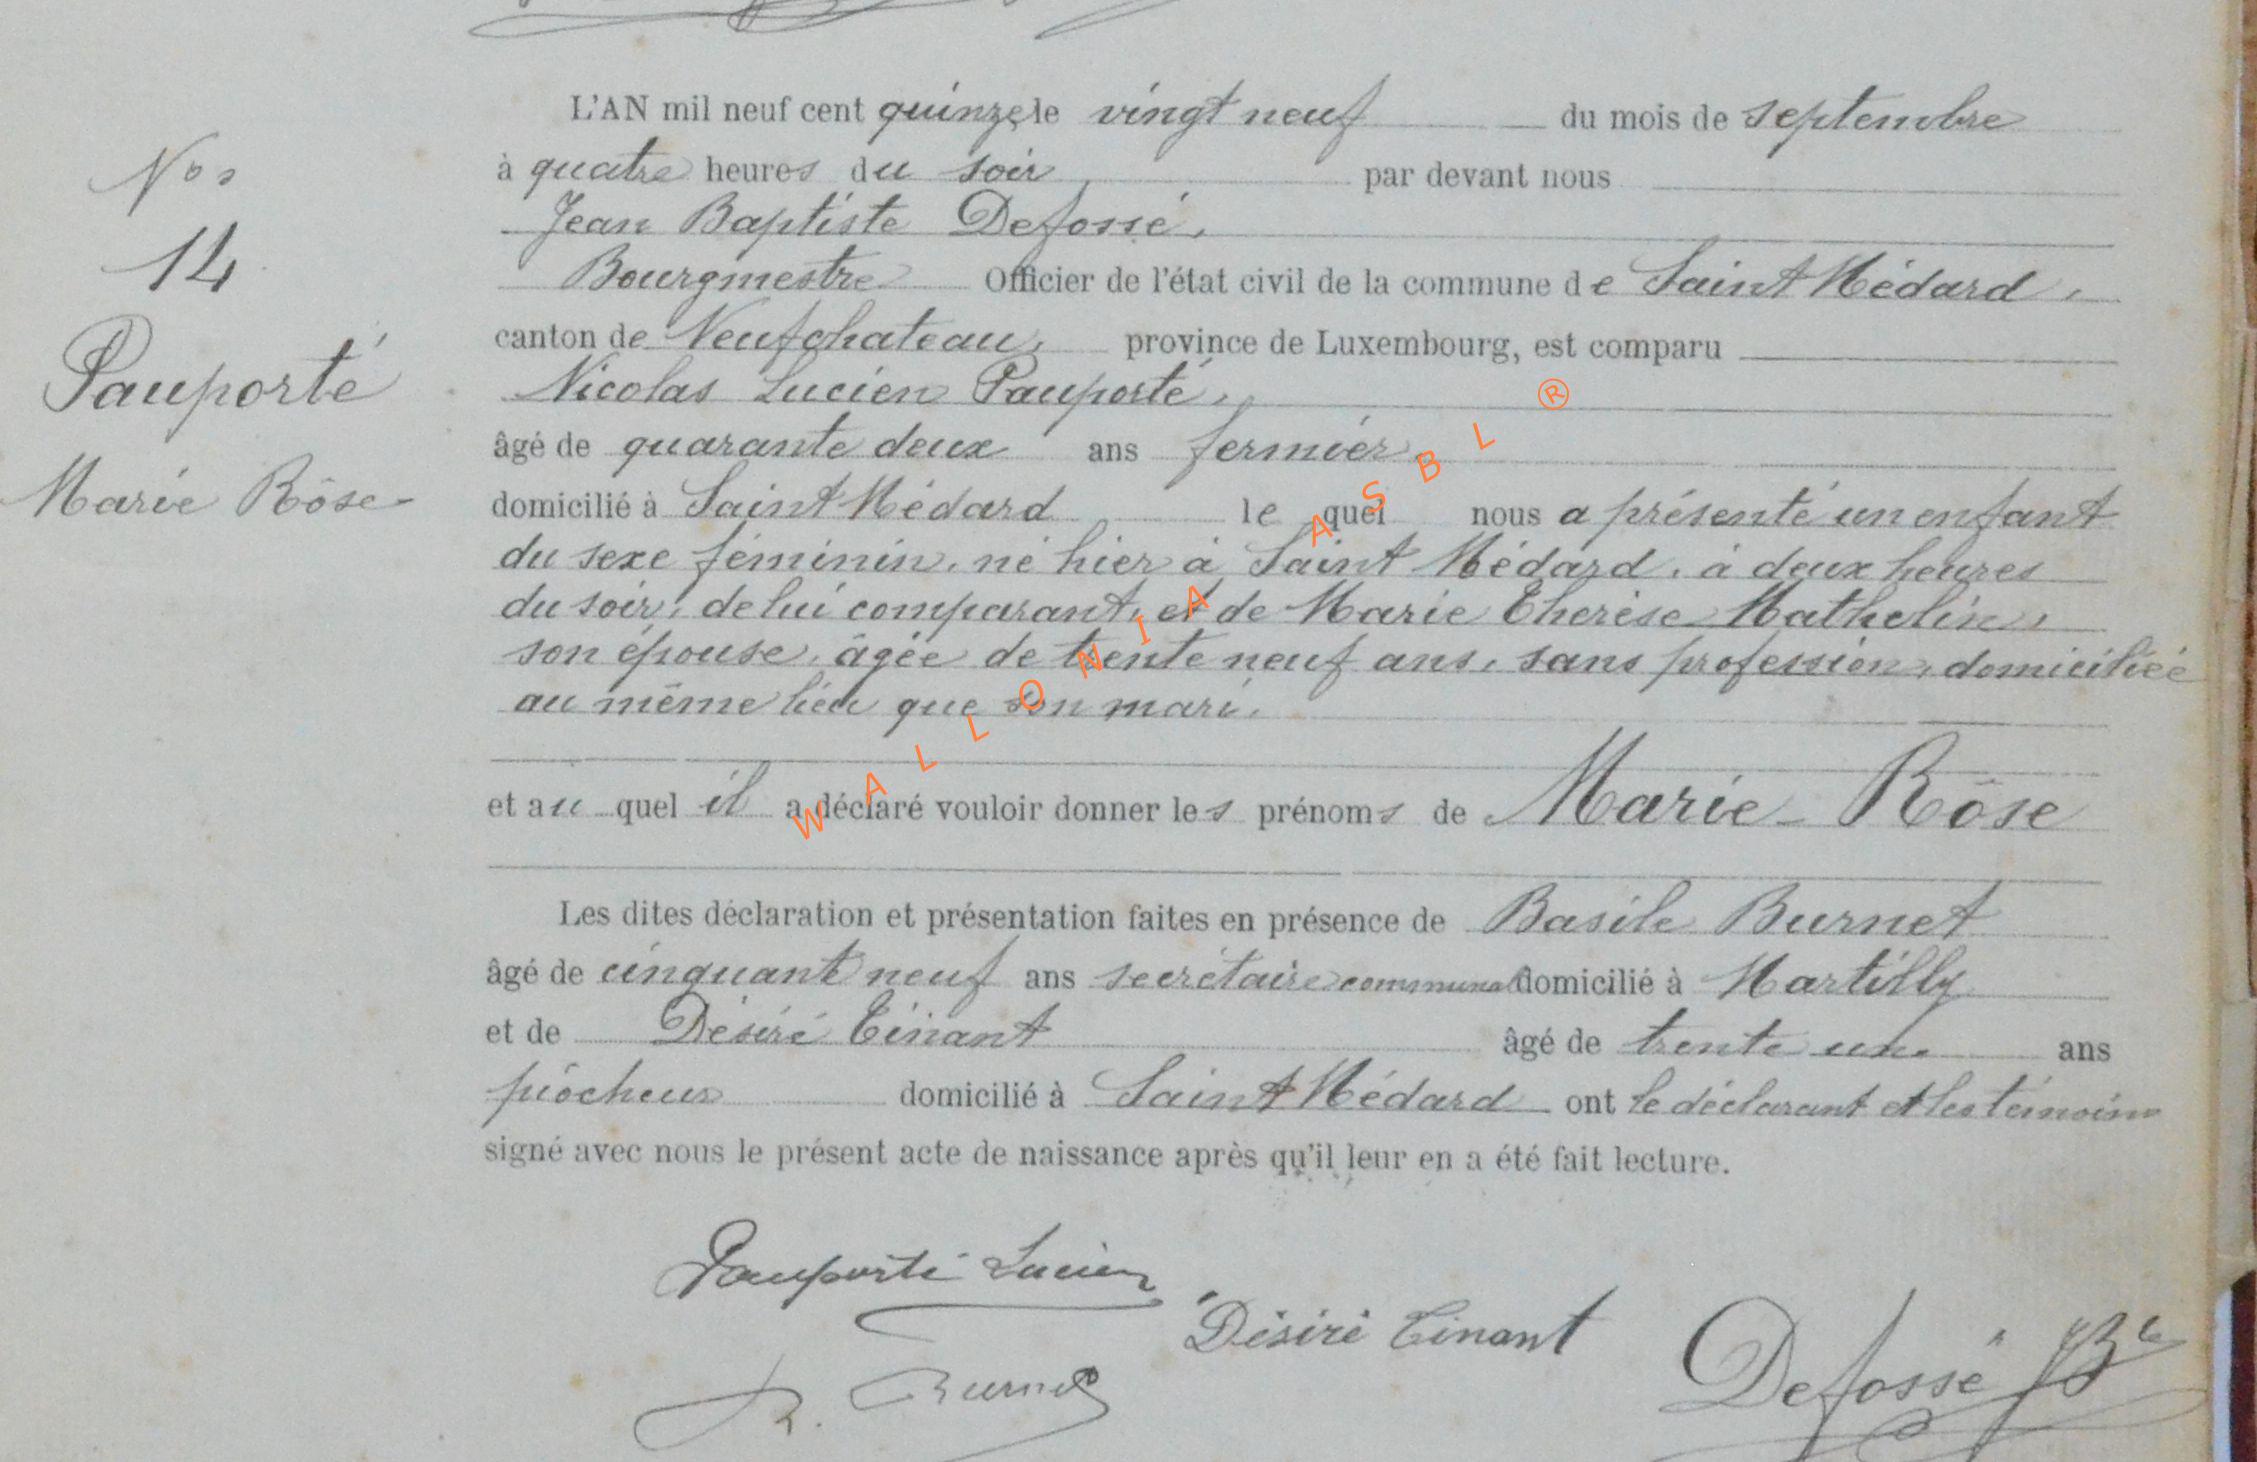 Nos
14
Pauporté
Marie Rôse
L'AN mil neuf cent quinze le vingt neuf du mois de septembre
à quatre heures du soir, par devant nous
Jean Baptiste Defossé,
Bourgmestre Officier de l'état civil de la commune de Saint Médard,
canton de Neufchateau, province de Luxembourg, est comparu
Nicolas Lucien Pauporté,
âgé de quarante deux ans fermier
domicilié à Saint Médard le quel nous a présenté un enfant
du sexe féminin, né hier à Saint Médard, à deux heures
du soir, de lui comparant, et de Marie Thérèse Mathelin,
son épouse, âgée de trente neuf ans, sans profession, domiciliée
au même lieu que son mari.
et au quel il a déclaré vouloir donner les prénoms de Marie-Rôse
Les dites déclaration et présentation faites en présence de Basile Burnet
âgé de cinquante neuf ans secrétaire communal domicilié à Martilly
et de Désiré Tinant âgé de trente un ans
piocheur domicilié à Saint Médard ont le déclarant et les témoins
signé avec nous le présent acte de naissance après qu'il leur en a été fait lecture.
Pauporté Lucien
Désiré Tinant
Burnet
Defossé JBte
WALLONIA ASBL ®